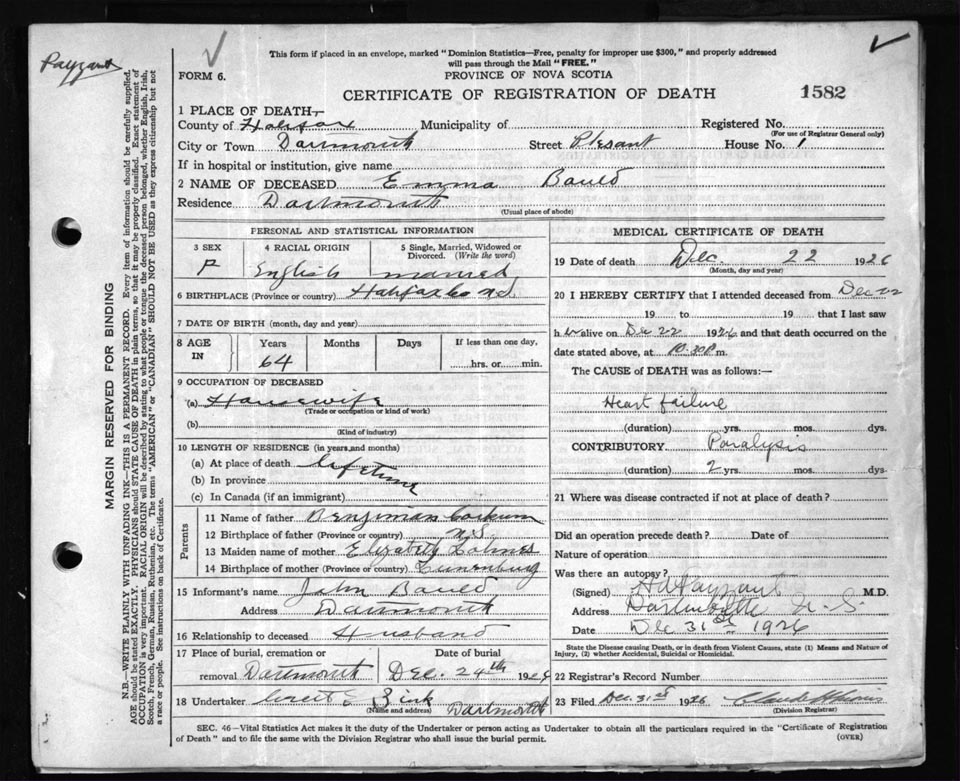 Payzant
This form if placed in an envelope, marked "Dominion Statistics—Free, penalty for improper use $300," and properly addressed
will pass through the Mail "FREE."
FORM 6.
PROVINCE OF NOVA SCOTIA
CERTIFICATE OF REGISTRATION OF DEATH
1582
1 PLACE OF DEATH—
County of Halifax Municipality of Registered No.
(For use of Registrar General only)
City or Town Dartmouth Street Plesant House No. 1
If in hospital or institution, give name
2 NAME OF DECEASED Emma Bauld
Residence Dartmouth
(Usual place of abode)
PERSONAL AND STATISTICAL INFORMATION
3 SEX 4 RACIAL ORIGIN 5 Single, Married, Widowed or
Divorced. (Write the word)
F English married
6 BIRTHPLACE (Province or country) Halifax Co N.S.
7 DATE OF BIRTH (month, day and year)
8 AGE IN Years Months Days If less than one day,
64 hrs. or min.
9 OCCUPATION OF DECEASED
(a) Housewife
(Trade or occupation or kind of work)
(b)
(Kind of industry)
10 LENGTH OF RESIDENCE (in years and months)
(a) At place of death lifetime
(b) In province
(c) In Canada (if an immigrant)
Parents
11 Name of father Benjiman
12 Birthplace of father (Province or country) N.S.
13 Maiden name of mother Elizabeth Holmes
14 Birthplace of mother (Province or country) Lunenburg
15 Informant's name John Bauld
Address Dartmouth
16 Relationship to deceased Husband
17 Place of burial, cremation or Date of burial
removal Dartmouth Dec. 24th 192
18 Undertaker Zink Dartmouth
(Name and address)
MEDICAL CERTIFICATE OF DEATH
19 Date of death Dec. 22 1926
(Month, day and year)
20 I HEREBY CERTIFY that I attended deceased from Dec 22
19 to 19 that I last saw
h er alive on Dec 22 1926 and that death occurred on the
date stated above, at 10.30 P m.
The CAUSE of DEATH was as follows:—
Heart failure
(duration) yrs. mos. dys.
CONTRIBUTORY Paralysis
(duration) 2 yrs. mos. dys.
21 Where was disease contracted if not at place of death?
Did an operation precede death? Date of
Nature of operation
Was there an autopsy?
(Signed) Payzant M.D.
Address Dartmouth N.S.
Date Dec 31st 1926
State the Disease causing Death, or in death from Violent Causes, state (1) Means and Nature of
Injury, (2) whether Accidental, Suicidal or Homicidal.
22 Registrar's Record Number
23 Filed Dec. 31st 1926
(Division Registrar)
SEC. 46—Vital Statistics Act makes it the duty of the Undertaker or person acting as Undertaker to obtain all the particulars required in the "Certificate of Registration
of Death" and to file the same with the Division Registrar who shall issue the burial permit.
(OVER)
MARGIN RESERVED FOR BINDING
N.B.—WRITE PLAINLY WITH UNFADING INK—THIS IS A PERMANENT RECORD. Every item of information should be carefully supplied.
AGE should be stated EXACTLY. PHYSICIANS should STATE CAUSE OF DEATH in plain terms, so that it may be properly classified. Exact statement of
OCCUPATION is very important. RACIAL ORIGIN will be described by stating to what people or tongue the deceased person belonged, whether English, Irish,
Scotch, French, German, Russian, Ruthenian, etc. The terms "AMERICAN" or "CANADIAN" SHOULD NOT BE USED as they express citizenship but not
a race or people. See instructions on back of Certificate.